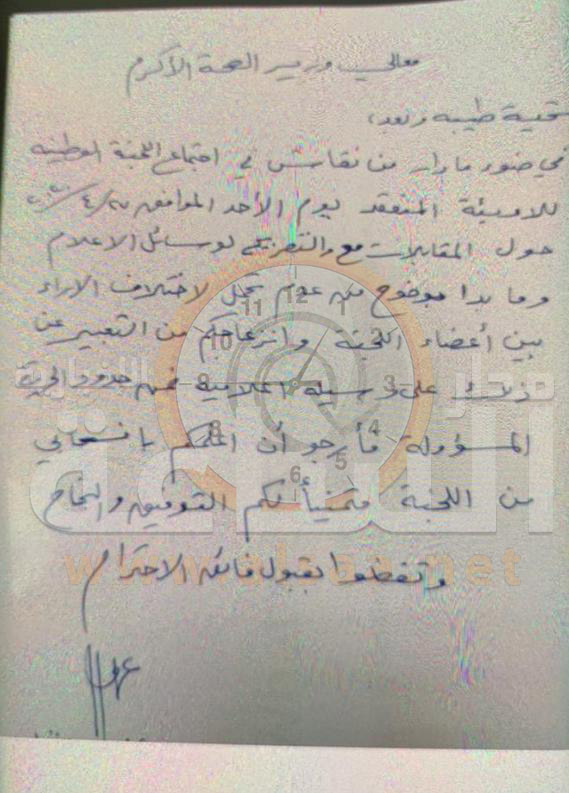 معالي وزير الصحة الأكرم
تحية طيبة وبعد،
في ضوء ما دار من نقاش في اجتماع اللجنة الوطنية
للاوبئة المنعقد يوم الأحد الموافق
حول المقابلات مع والتصريح لوسائل الاعلام
وما بدا بوضوح من عدم تحمل لاختلاف الاراء
بين أعضاء اللجنة وانزعاجكم من التعبير عن
ذلك على وسيلة اعلامية ضمن حدود الحرية
المسؤولة فأرجو أن اعلمكم بانسحابي
من اللجنة متمنياً لكم التوفيق والنجاح
وتفضلوا بقبول فائق الاحترام
مدار الساعة
الإخبارية
12
1
3
4
5
6
8
9
10
11